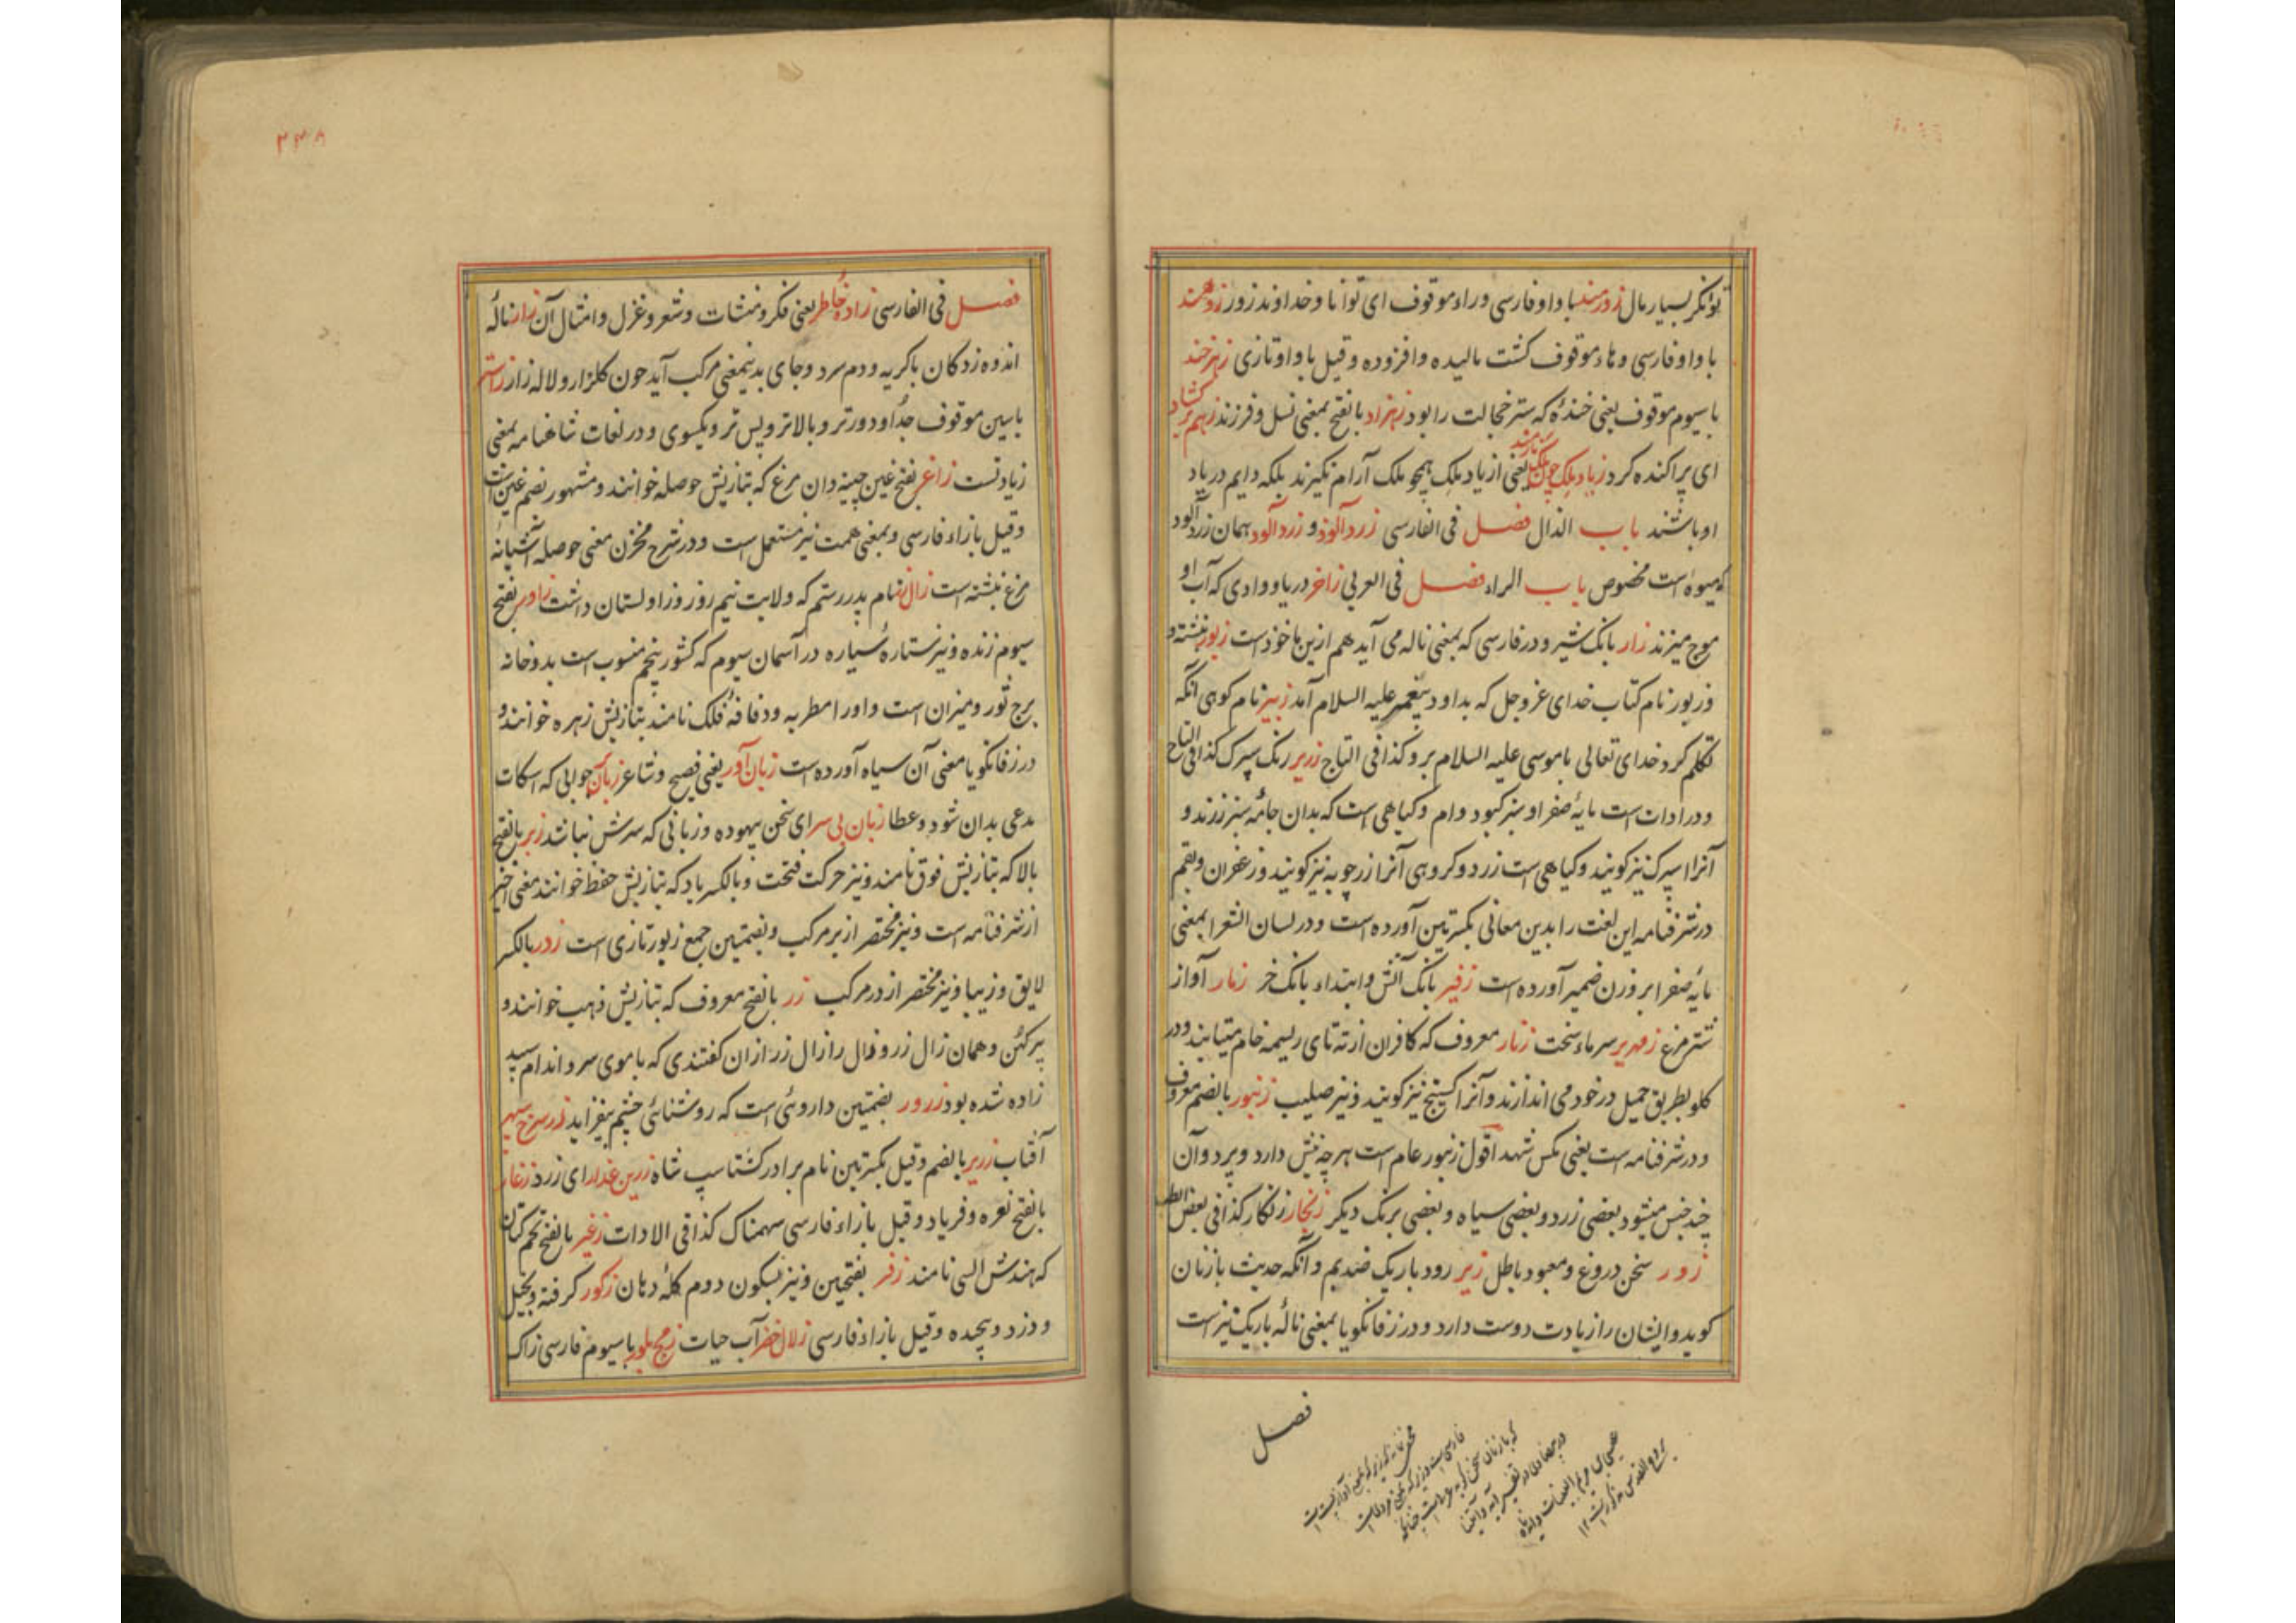 توانکر بسیار مال زورمند با واو فارسی وراء موقوف ای توانا وخداوند زور زوهمند
با واو فارسی وهاء موقوف کشت بالیده وافزوده وقیل با واو تازی زهرخند
با سیوم موقوف یعنی خندهٔ که ستر خجالت را بود زهزاد بالفتح بمعنی نسل وفرزند زهم بر کشاد
ای پراکنده کرد زیاد ملک چون ملک نارمند یعنی از یاد ملک همچو ملک آرام نکیرند بلکه دایم در یاد
او باشند باب الذال فصل فی الفارسی زردآلوذ و زردآلود همان زردآلود
که میوه است مخصوص باب الراء فصل فی العربی زاخر دریا ووادی که آب او
موج میزند زار بانک شیر ودر فارسی که بمعنی ناله می آید هم ازین ماخوذ است زبور نبشته و
وزبور نام کتاب خدای عزوجل که بداود پیغمبر علیه السلام آمد زبیر نام کوهی انکه
تکلم کرد خدای تعالی با موسی علیه السلام برو کذا فی التاج زریر رنک سپرک کذا فی التاج
ودر ادات است مایهٔ صفرا وسبز کبود وام وکیاهی است که بدان جامه سبز رزند و
آنرا اسپرک نیز کویند وکیاهی است زرد وکروهی آنرا زرچوبه نیز کویند وزعفران وبقم
در شرفنامه این لغت را بدین معانی بکسرتین آورده است ودر لسان الشعرا بمعنی
مایهٔ صفرا بر وزن ضمیر آورده است زفیر بانک آتش وابتداء بانک خر زمار آواز
شترمرغ زمهریر سرماء سخت زنار معروف که کافران از ته تای ریسمه خام میتابند ودر
کلو بطریق حمیل در خود می اندازند وآنرا کستیج نیز کویند ونیز صلیب زنبور بالضم معروف
ودر شرفنامه است یعنی مکس شهد اقول زنبور عام است هر چه نیش دارد وپرد وآن
چند جنس میشود بعضی زرد وبعضی سیاه وبعضی برنک دیکر زنجار زنکار کذا فی بعض الطب
زور سخن دروغ ومعبود باطل زیر رود باریک ضد بم وآنکه حدیث با زنان
کوید وایشان را زیادت دوست دارد ودر زفانکویا بمعنی نالهٔ باریک نیز است
فصل
۲۳۸
فصل فی الفارسی زادهٔ خاطر یعنی فکر ومنشات وشعر وغزل وامثال آن زار نالهٔ
اندوه زدکان با کریه ودم سرد وجای بدینمعنی مرکب آید چون کلزار ولاله زار زاستر
با سین موقوف جدا ودورتر وبالاتر وپس تر ویکسوی ودر لغات شاهنامه بمعنی
زیادتست زاغر بفتح غین چینه دان مرغ که بتازیش حوصله خوانند ومشهور بضم غین است
وقیل با زاء فارسی وبمعنی همت نیز مستعمل است ودر شرح مخزن معنی حوصله آشیانهٔ
مرغ نبشته است زال زر نام پدر رستم که ولایت نیم روز وزاولستان داشت زاور بفتح
سیوم زنده ونیز ستارهٔ سیاره در آسمان سیوم که کشور پنجم منسوب است بدو خانه
برج ثور ومیزان است واورا مطربه ودفافهٔ فلک نامند بتازیش زهره خوانند و
در زفانکویا معنی آن سیاه آورده است زبان آور یعنی فصیح وشاعر جوابی که اسکات
مدعی بدان شود وعطا زبان بی سر ای سخن بیهوده وزبانی که سرش نباشد زبر بالفتح
بالا که بتازیش فوق نامند ونیز حرکت فتحت وبالکسر یاد که بتازیش حفظ خوانند معنی اخیر
از شرفنامه است ونیز مختصر از بر مرکب وبضمتین جمع زبور تازی است زدر بالکسر
لایق وزیبا ونیز مختصر از در مرکب زر بالفتح معروف که بتازیش ذهب خوانند و
پیر کهن وهمان زال زر وزال را زال زر ازان کفتندی که با موی سر واندام سپید
زاده شده بود زرور بضمتین داروئی است که روشنائی چشم بیفزاید زر سرخ سپهر
آفتاب زریر بالضم وقیل بکسرتین نام برادر کشتاسپ شاه زرین عذار ای زرد زغار
بالفتح نعره وفریاد وقیل با زاء فارسی سهمناک کذا فی الادات زغیر بالفتح تخم کتان
که هندش السی نامند زفر بفتحتین ونیز بسکون دوم کلهٔ دهان زکور کرفته وبخیل
ودزد وپیچیده وقیل با زاء فارسی زلال خضر آب حیات زمج بلور با سیوم فارسی زاک